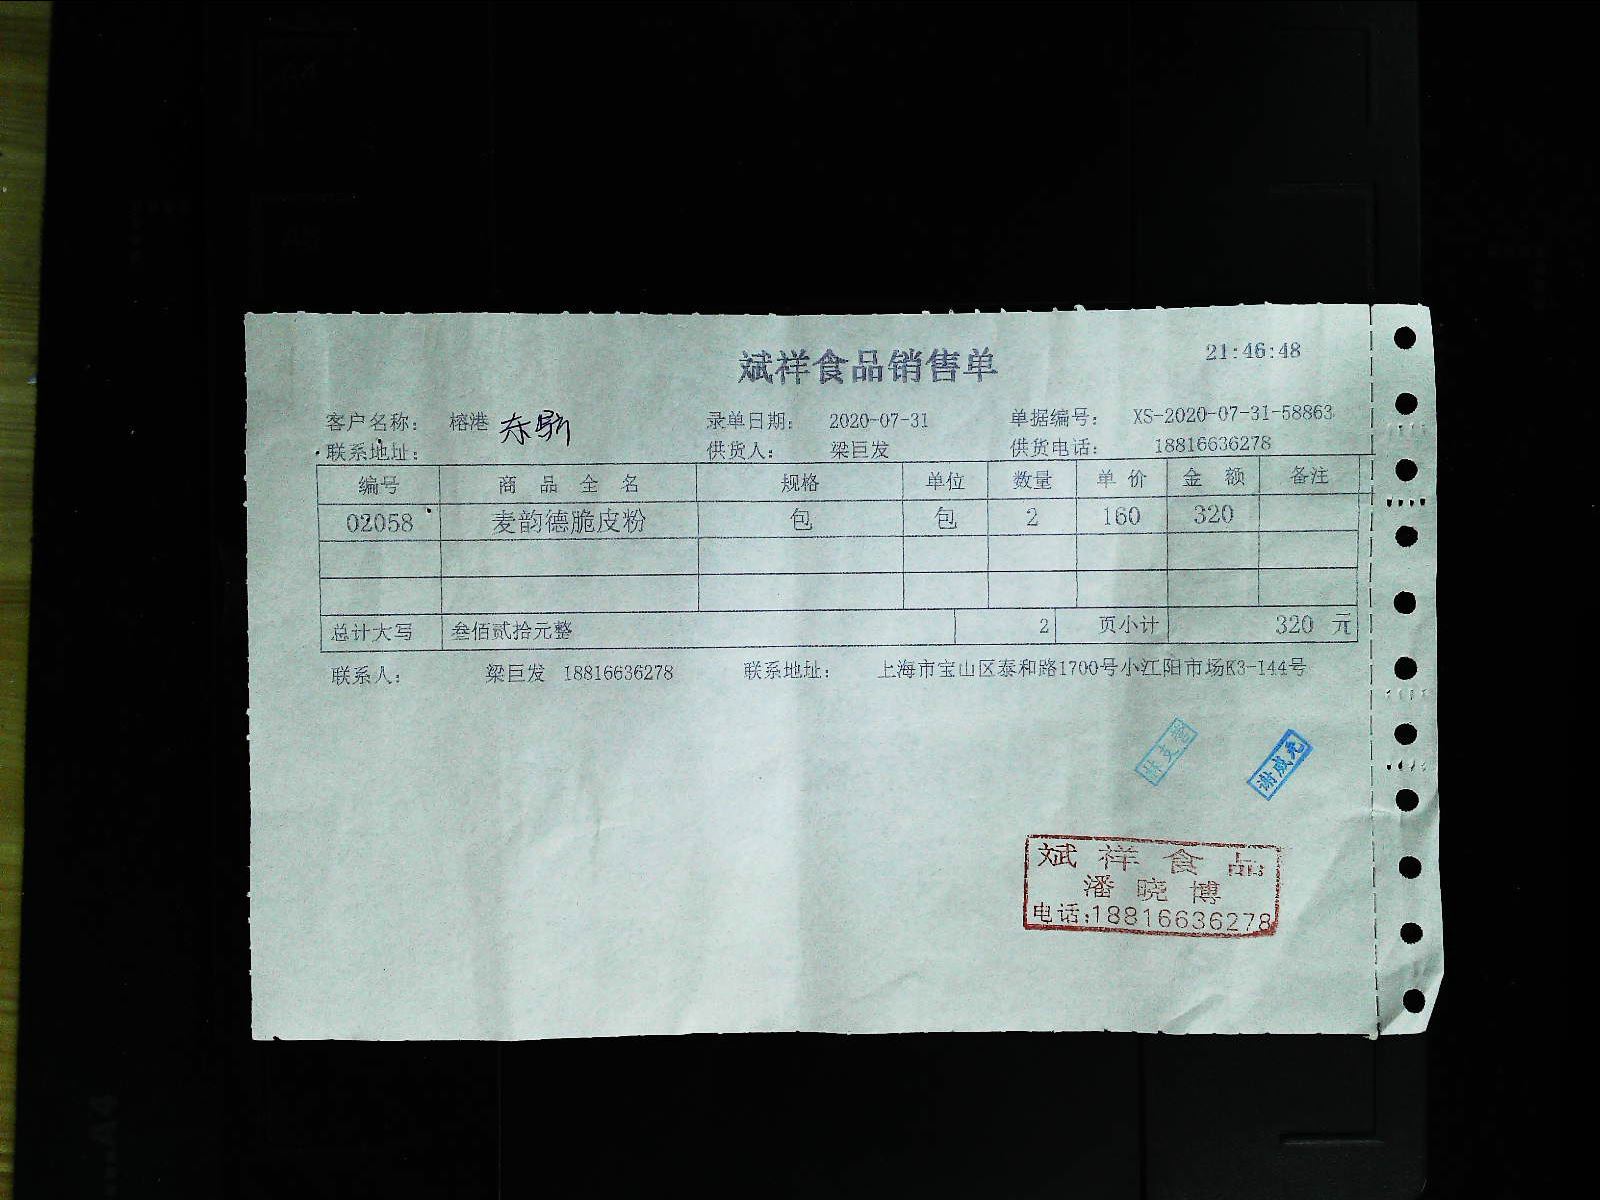 斌祥食品销售单
21:46:48
客户名称： 榕港 录单日期： 2020-07-31 单据编号： XS-2020-07-31-58863
联系地址： 供货人： 梁巨发 供货电话： 18816636278
编号 商品全名 规格 单位 数量 单价 金额 备注
02058 麦韵德脆皮粉 包 包 2 160 320
总计大写 叁佰贰拾元整 2 页小计 320 元
联系人： 梁巨发 18816636278 联系地址： 上海市宝山区泰和路1700号小江阳市场K3-144号
谢成元
斌祥食品
潘晓博
电话:18816636278
A4